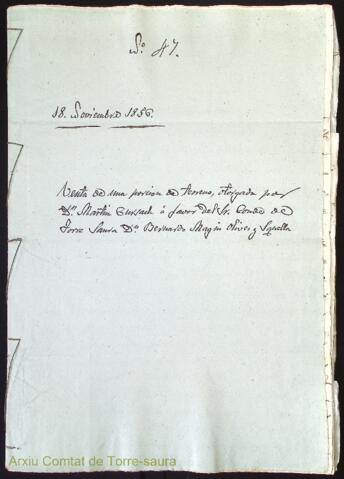 Nº 47.
18. Noviembre 1856.
Venta de una porcion de terreno, otorgada por
Dn. Martin Cursach á favor del Sr. Conde de
Torre Saura Dn. Bernardo Magin Olives y Squella
Arxiu Comtat de Torre-saura